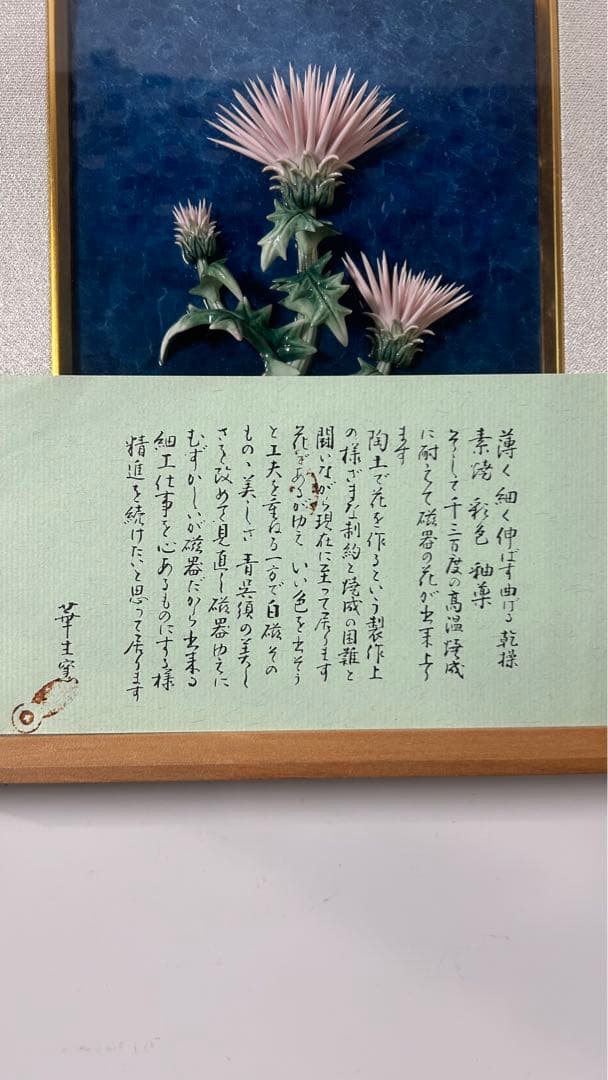 薄く 細く 伸ばす 曲げる 乾操
素焼 彩色 釉薬
そして千三百度の高温焼成
に耐えて磁器の花が出来上り
ます
陶土で花を作るという製作上
の様ざまな制約と焼成の困難と
闘いながら現在に至って居ります
花であるがゆえ いい色を出そう
と工夫を重ねる一方で白磁その
もの丶美しさ 青呉須の美し
さを改めて見直し磁器ゆえに
むずかしいが磁器だから出来る
細工仕事を心あるものにする様
精進を続けたいと思って居ります
華土窯